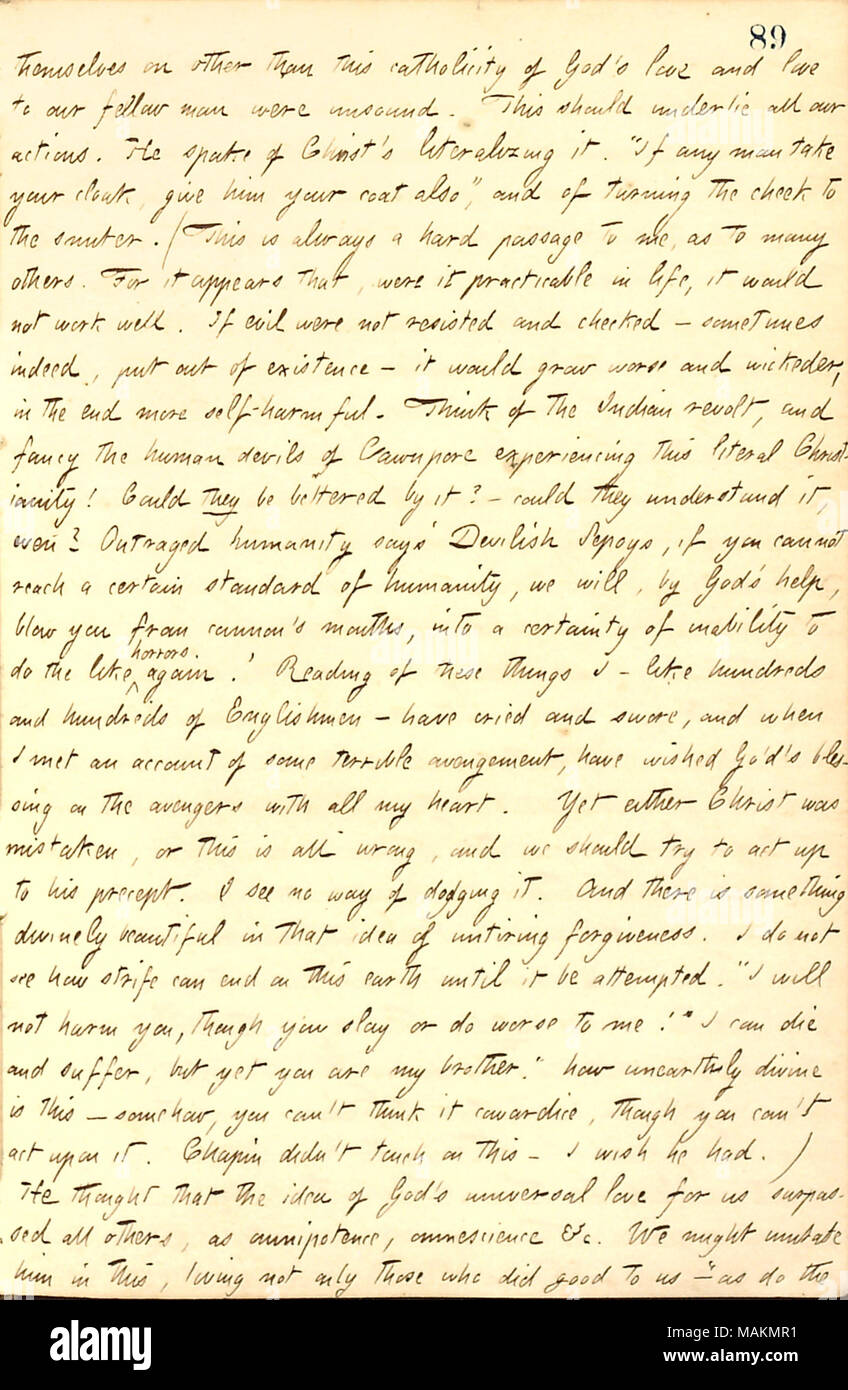 89
themselves on other than this catholicity of God's love and love
to our fellow man were unsound. This should underlie all our
actions. He spoke of Christ's literalizing it. "If any man take
your cloak, give him your coat also", and of turning the cheek to
the smiter. (This is always a hard passage to me, as to many
others. For it appears that, were it practicable in life, it would
not work well. If evil were not resisted and checked — sometimes
indeed, put out of existence — it would grow worse and wickeder,
in the end more self-harmful. Think of the Indian revolt, and
fancy the human devils of Cawnpore experiencing this literal Christ-
ianity! Could they be bettered by it? — could they understand it,
even? Outraged humanity says 'Devilish Sepoys, if you cannot
reach a certain standard of humanity, we will, by God's help,
blow you from cannon's mouths, into a certainty of inability to
do the like horrors again.' Reading of these things I — like hundreds
and hundreds of Englishmen — have cried and swore, and when
I met an account of some terrible avengement, have wished God's bles-
sing on the avengers with all my heart. Yet either Christ was
mistaken, or this is all wrong, and we should try to act up
to his precept. I see no way of dodging it. And there is something
divinely beautiful in that idea of untiring forgiveness. I do not
see how strife can end on this earth until it be attempted. "I will
not harm you, though you slay or do worse to me!" I can die
and suffer, but yet you are my brother." how unearthly divine
is this — somehow, you can't think it cowardice, though you can't
act upon it. Chapin didn't touch on this — I wish he had.)
He thought that the idea of God's universal love for us surpas-
sed all others, as omnipotence, omnescience &c. We might imitate
him in this, loving not only those who did good to us — "as do the
alamy
Image ID: MAKMR1
www.alamy.com